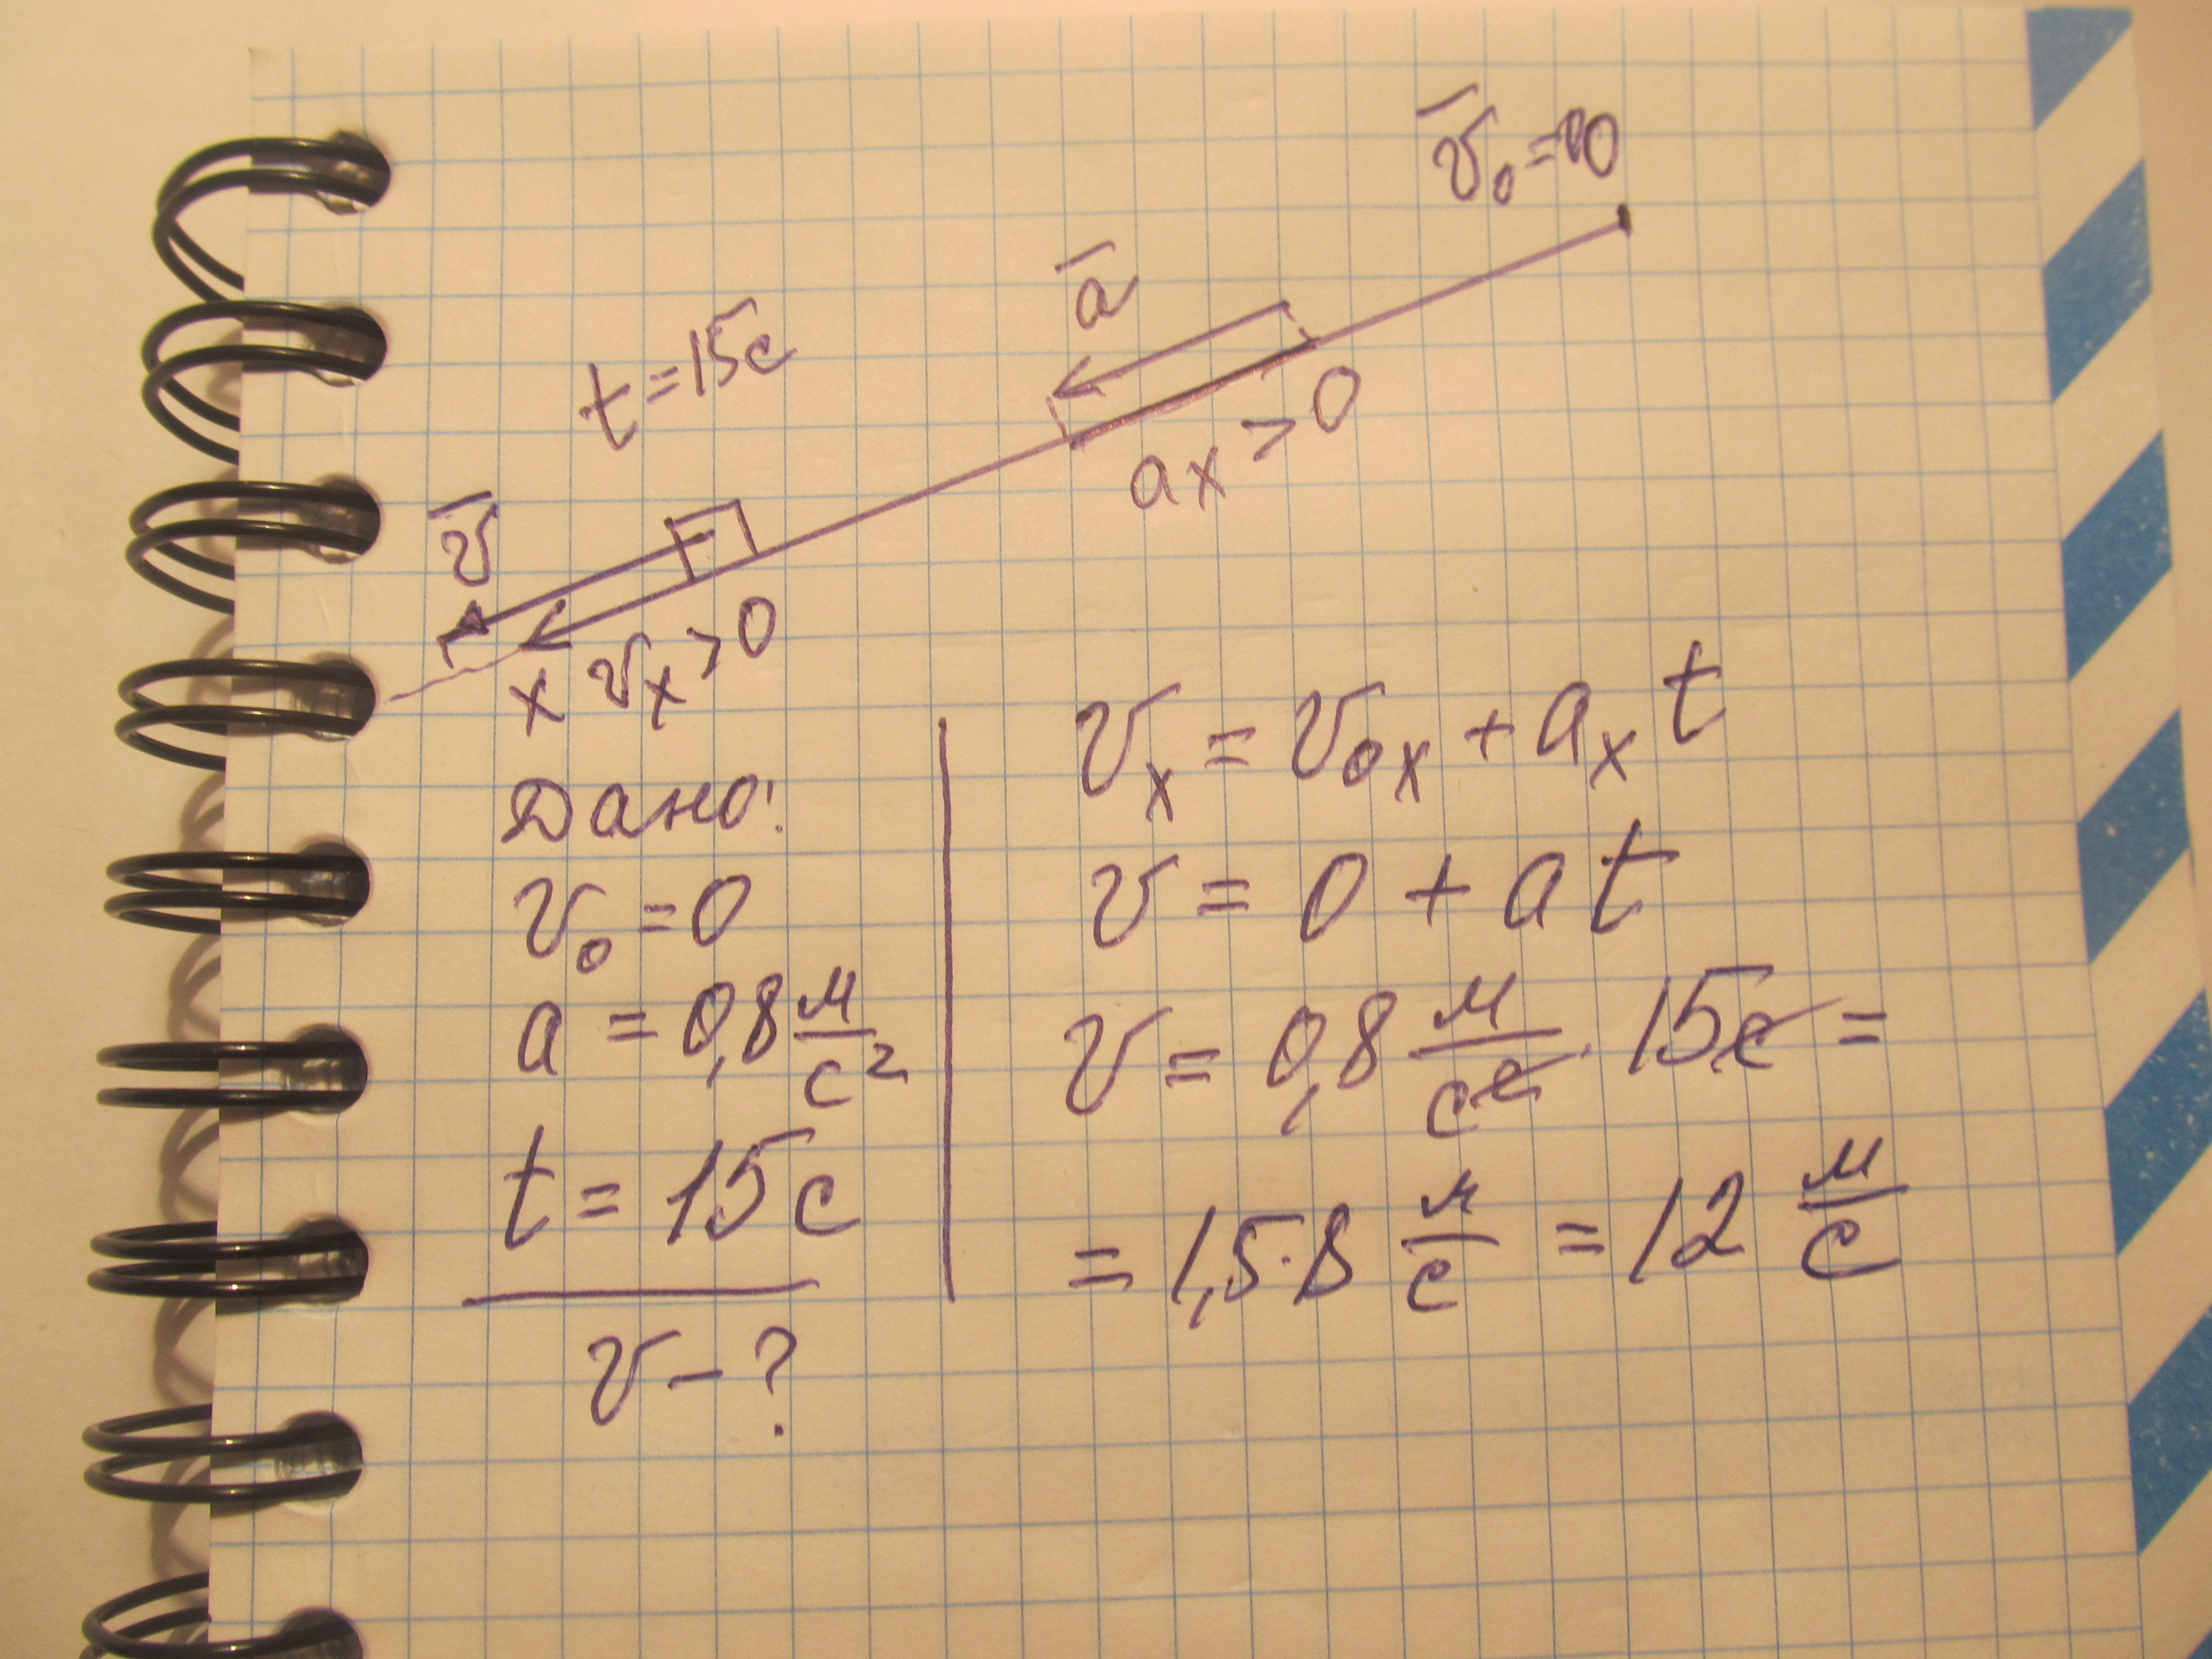 v̄₀ = 0
ā
t = 15с
aₓ > 0
v̄
x vₓ > 0
Дано:
v₀ = 0
a = 0,8 м/с²
t = 15 с
v - ?
vₓ = v₀ₓ + aₓ t
v = 0 + a t
v = 0,8 м/с² · 15с =
= 1,5 · 8 м/с = 12 м/с